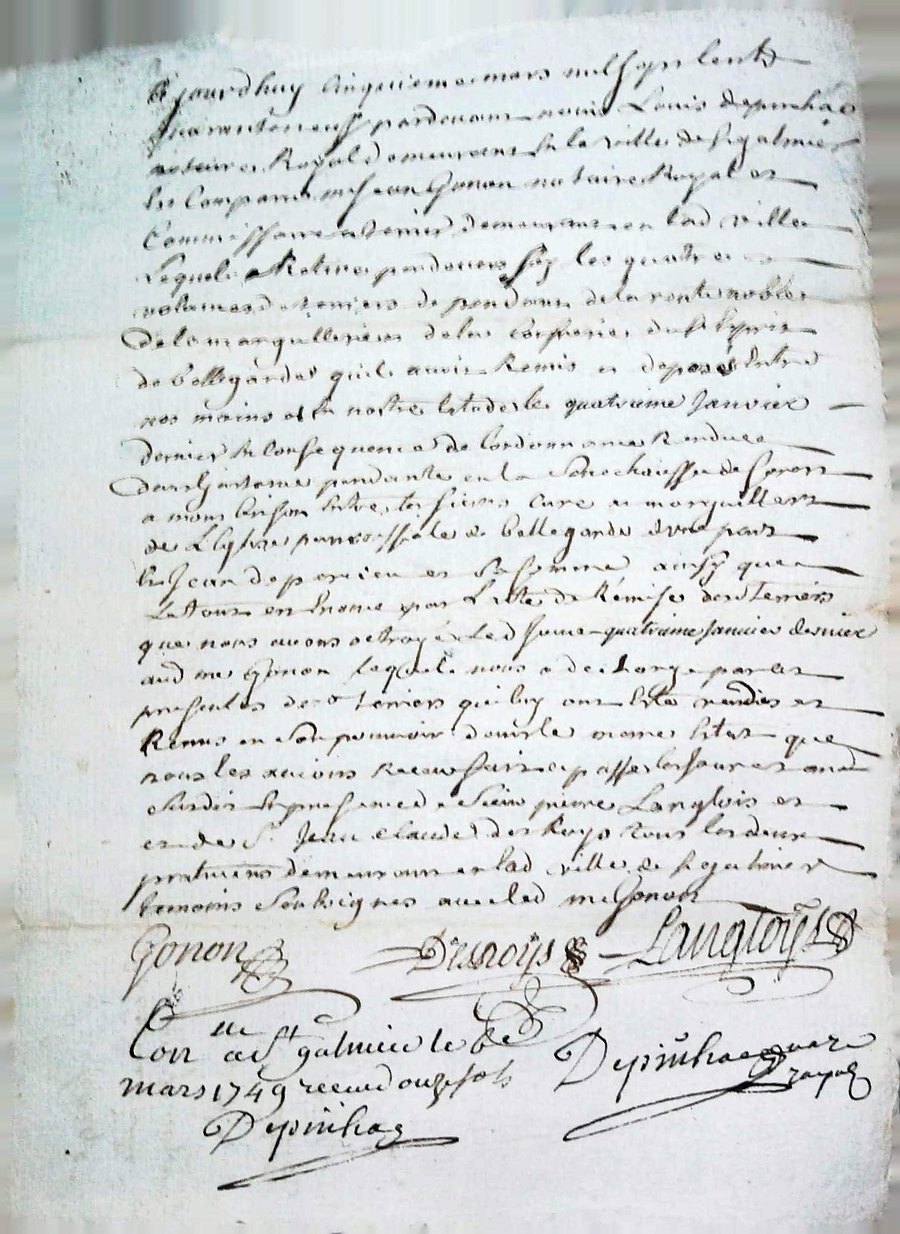 Aujourdhuy cinquieme mars mil sept cents
quarante neuf pardevant nous Louis Depinhac
notaire Royal demeurant en la ville de St galmier
est comparu me Jean Gonon notaire Royal et
Commissaire a terrier demeurant en lad ville
Lequel a Retiré pardevers soy les quatre
volumes de terriers dependant de la rente noble
de la marguillerie de la Confrerie du St Esprit
de bellegarde quil avoit Remis et deposé entre
nos mains et en nostre estude le quatrieme Janvier
dernier En Consequence de Lordonnance Rendue
dans Linstance pendante en la Senechaussée de forest
a montbrison Entre les sieurs curé et marguilliers
de L'Eglise parroissialle de bellegarde d'une part
Sr Jean et Consors ainsy que
Le tout est Enoncé par L'acte de Remise des Terriers
que nous avons octroyé Led Jour quatrieme Janvier dernier
aud me Gonon lequel nous a decharge par ces
presentes desd terriers qui luy ont esté rendus et
Remis en son pouvoir dans le meme Estat que
nous les avions Receu fait et passé les jour et an
susdit En presence de Sieur pierre Langlois et
de Sr Jean Claude Desroys tous les deux
praticiens demeurant en lad ville de St galmier
temoins Soubsignes avec led me Gonon
Gonon Desroÿs Langloÿs
Conlle a St galmier le 6e
mars 1749 receu douze sols
Depinhac
Depinhac nore
royal